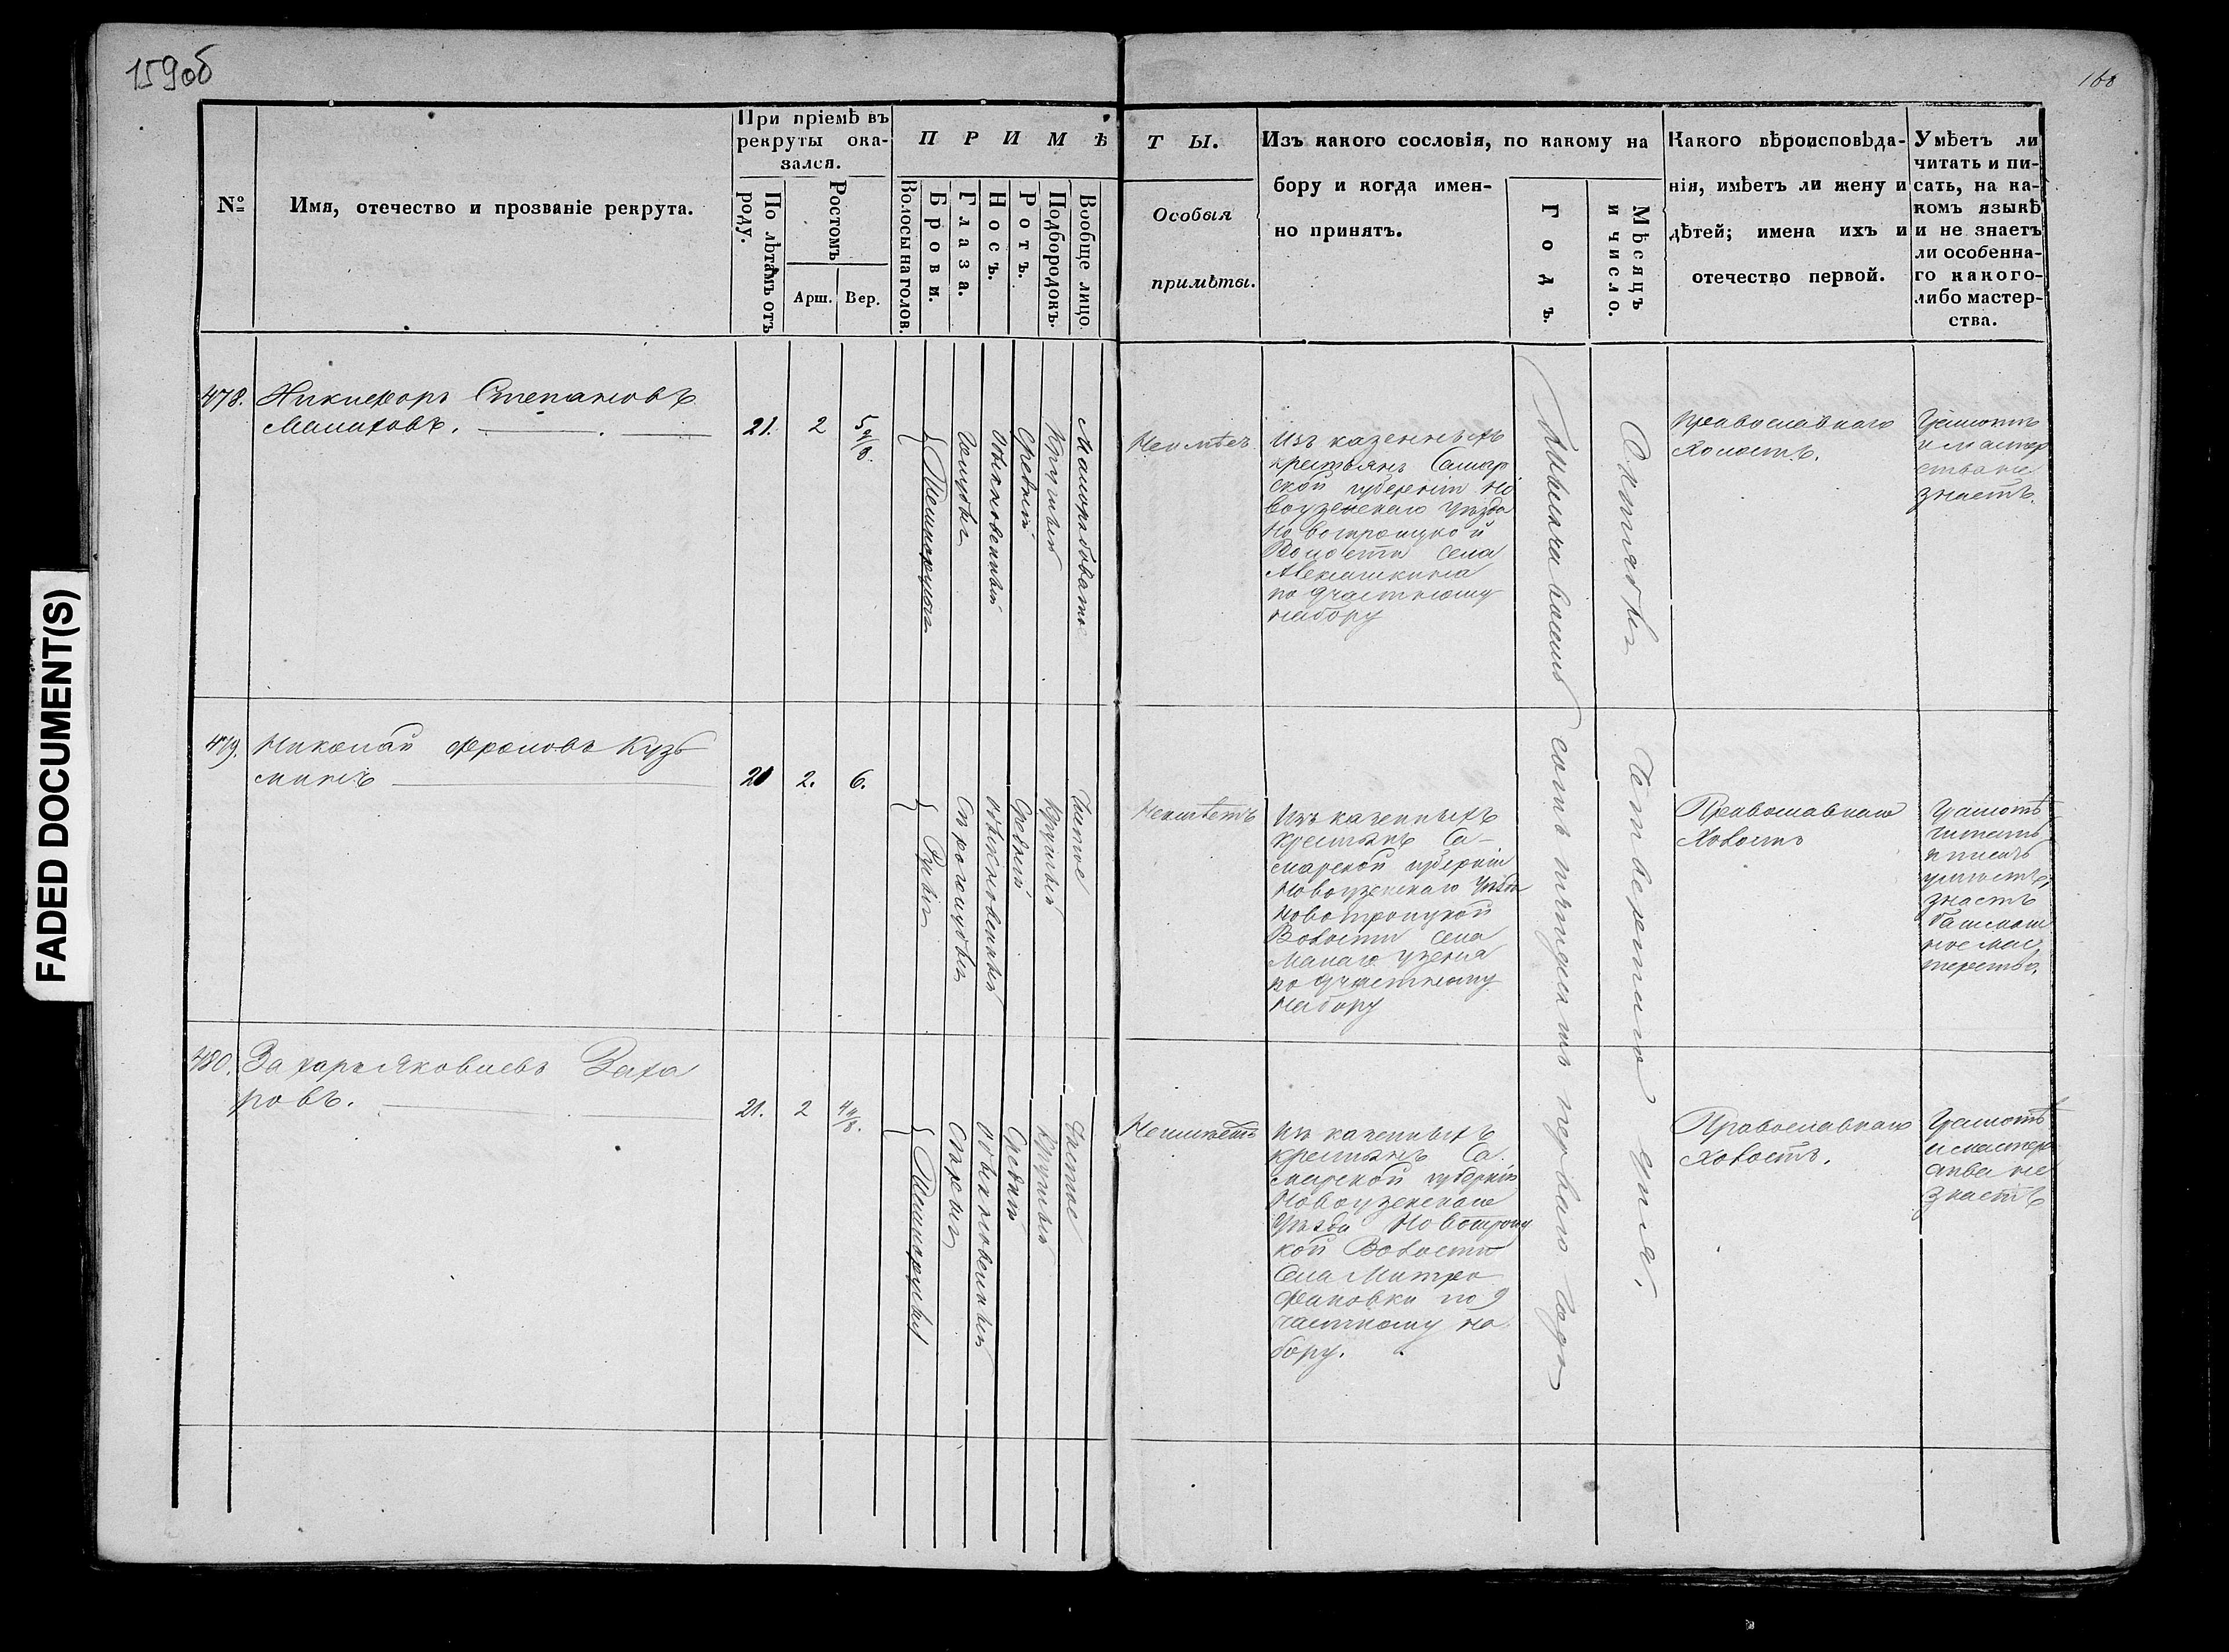 159об
168
FADED DOCUMENT(S)
№
Имя, отечество и прозваніе рекрута.
При пріемѣ въ
рекруты ока-
зался.
По лѣтамъ отъ
роду.
Ростомъ
Арш.
Вер.
ПРИМѢ
Волосы на голов.
Брови.
Глаза.
Носъ.
Ротъ.
Подбородокъ.
Вообще лицо.
ТЫ.
Особыя
примѣты.
Изъ какого сословія, по какому на
бору и когда имен-
но принятъ.
Годъ.
Мѣсяцъ
и число.
Какого вѣроисповѣда-
нія, имѣетъ ли жену и
дѣтей; имена ихъ и
отечество первой.
Умѣетъ ли
читать и пи-
сать, на ка-
комъ языкѣ
и не знаетъ
ли особенна-
го какого-
либо мастер-
ства.
478.
Никифоръ Степановъ
Малиховъ.
21.
2
5 4/8.
Темнорусыя
Голубыя
Обыкновенный
Средній
Круглый
Малорябовато
Неимѣет
Изъ казенныхъ
крестьянъ Самар
ской губерніи Но
воузенскаго Уѣзда
Новотроицкой
Волости села
Алексашкина
по 9 частному
набору
Тысяча восемь сотъ пятдесятъ перваго года
Октября Четвертаго дня.
Православнаго
Холостъ.
Грамотѣ
и мастер
ства не
знаетъ.
479.
Николай Фроловъ Кузь
минъ
20
2.
6.
Русыя
Сѣроголубыя
Обыкновенный
Средній
Круглый
Чистое
Неимѣетъ
Изъ казенныхъ
крестьянъ Са-
марской губерніи
Новоузенскаго Уѣзда
Новотроицкой
Волости села
Малаго узеня
по 9 частному
набору
Православнаго
Холостъ
Грамотѣ
читать
и писать
умѣетъ,
знаетъ
башмаш
ное мас
терство.
480.
Захаръ Яковлевъ Заха
ровъ.
21.
2
4 4/8.
Темнорусыя
Сѣрыя
Обыкновенный
Средній
Круглый
Чистое
Неимѣетъ
Изъ казенныхъ
крестьянъ Са
марской губерніи
Новоузенскаго
Уѣзда Новотроиц
кой Волости
села Митро
фановки по 9
частному на
бору.
Православнаго
Холостъ.
Грамотѣ
и мастер
ства не
знаетъ